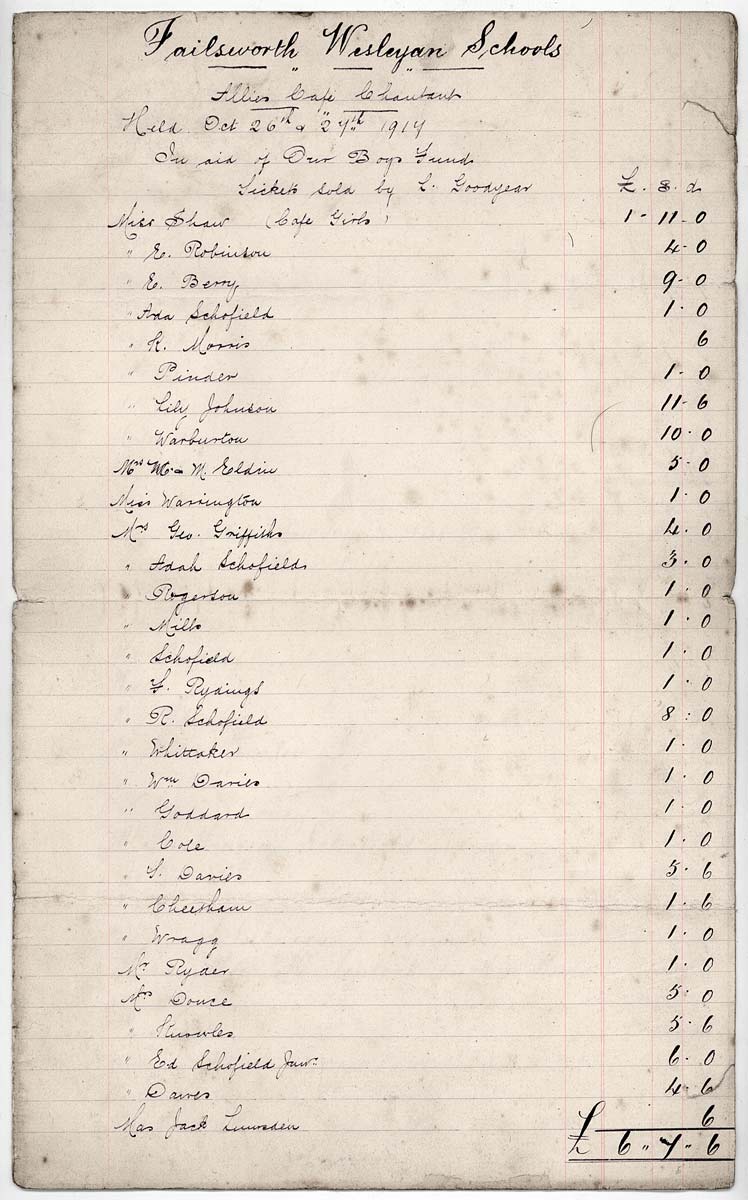 Failsworth Wesleyan Schools
Allies Café Chantant
Held Oct 26th & 27th 1917
In aid of Our Boys Fund
Tickets sold by L. Goodyear £. s. d
Miss Shaw (Cafe Girls) 1 - 11 - 0
" E. Robinson 4 - 0
" E. Berry 9 - 0
" Ada Schofield 1 - 0
" K. Morris 6
" Pinder 1 - 0
" Lily Johnson 11 - 6
" Warburton 10 - 0
Mrs W. & M. Eldrin 5 - 0
Miss Warrington 1 - 0
Mrs Geo. Griffiths 4 - 0
" Adah Schofields 3 - 0
" Rogerson 1 - 0
" Mills 1 - 0
" Schofield 1 - 0
" F. Rydings 1 - 0
" R. Schofield 8 : 0
" Whittaker 1 - 0
" Wm Davies 1 - 0
" Goddard 1 - 0
" Cole 1 - 0
" S. Davies 5 - 6
" Cheetham 1 - 6
" Wragg 1 - 0
Mr Ryder 1 - 0
Mrs Douce 5 : 0
" Knowles 5 - 6
" Ed Schofield Junr 6 - 0
" Dawes 4 - 6
Mas Jack Lumsden 6
£ 6 " 7 " 6